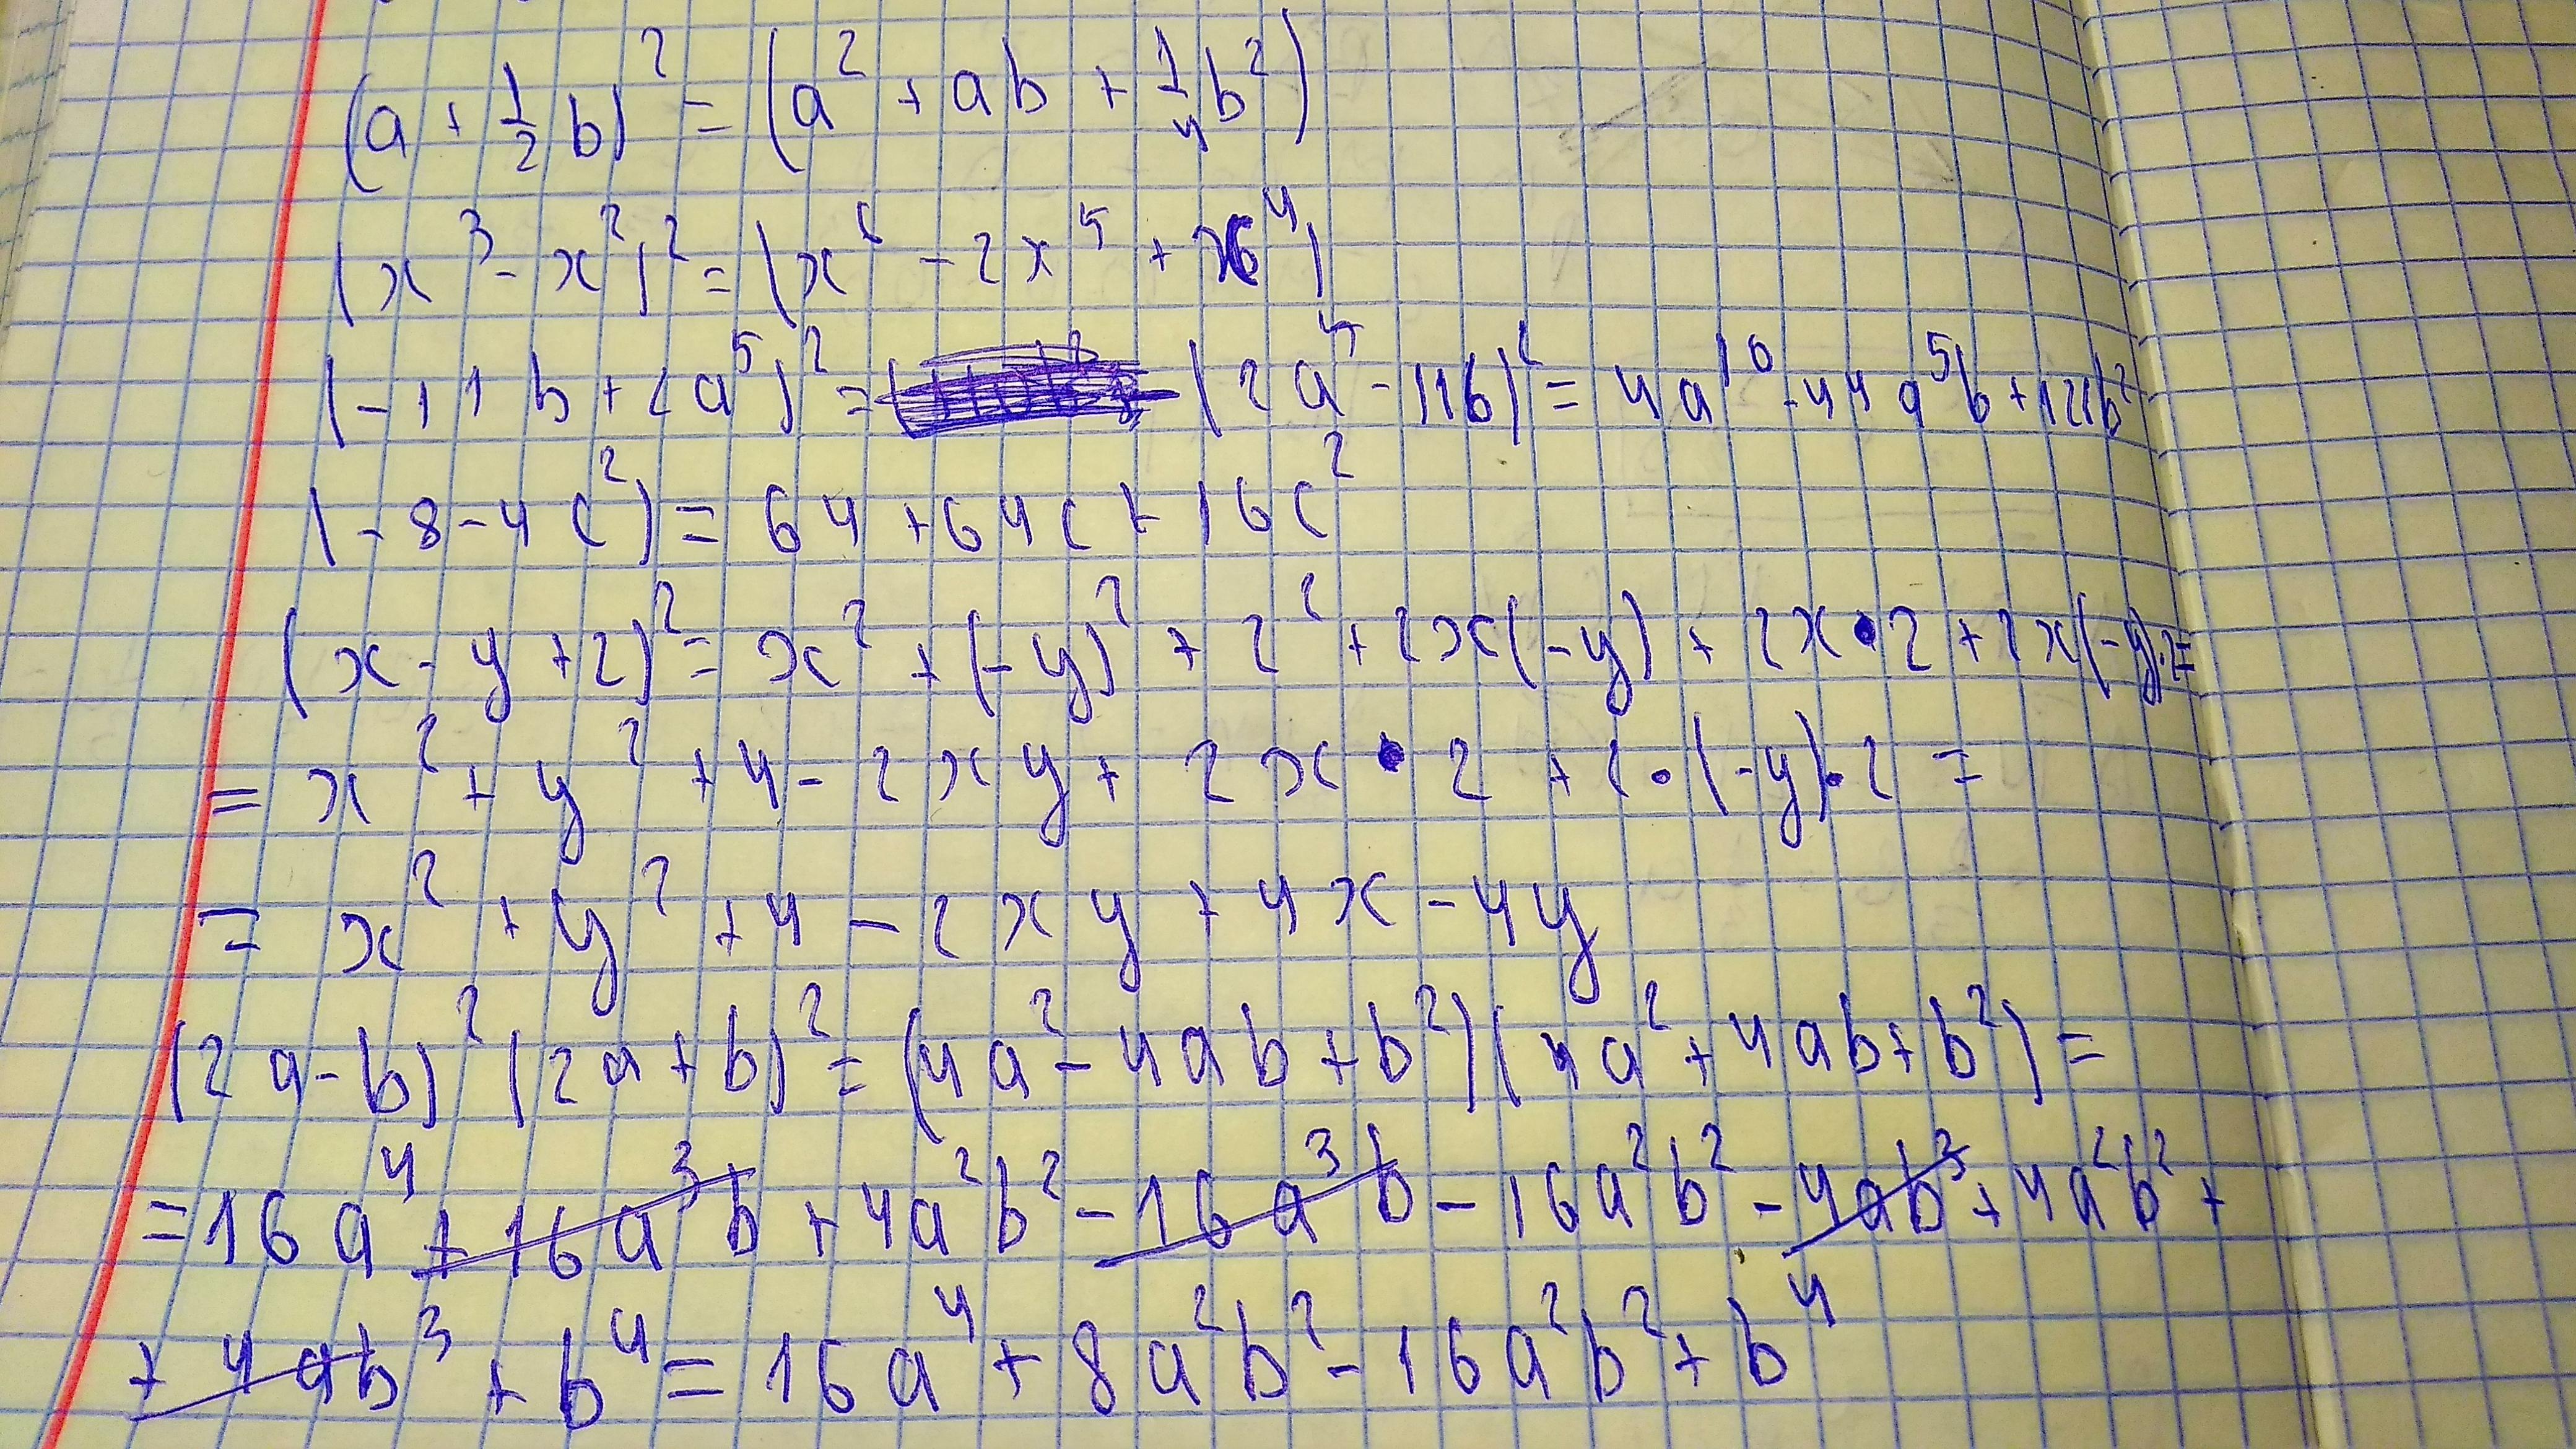 (a + 1/2 b)² = (a² + ab + 1/4 b²)
(x³ - x²)² = (x⁶ - 2x⁵ + x⁴)
(-11b + 2a⁵)² = (2a⁵ - 11b)² = 4a¹⁰ - 44a⁵b + 121b²
(-8 - 4c²) = 64 + 64c + 16c²
(x - y + 2)² = x² + (-y)² + 2² + 2x(-y) + 2x•2 + 2x(-y)·2 =
= x² + y² + 4 - 2xy + 2x • 2 + 2•(-y)•2 =
= x² + y² + 4 - 2xy + 4x - 4y
(2a - b)² (2a + b)² = (4a² - 4ab + b²)(4a² + 4ab + b²) =
= 16a⁴ + 16a³b + 4a²b² - 16a³b - 16a²b² - 4ab³ + 4a²b² +
+ 4ab³ + b⁴ = 16a⁴ + 8a²b² - 16a²b² + b⁴